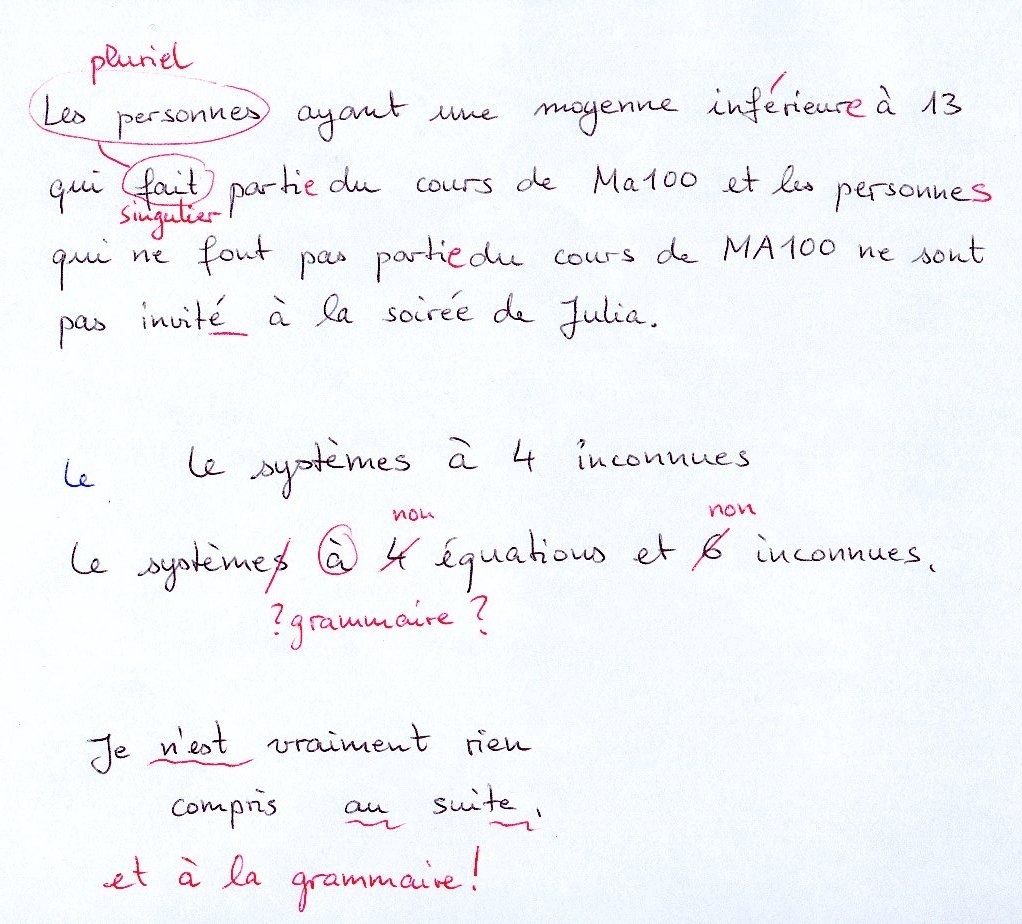 pluriel
Les personnes ayant une moyenne inférieure à 13
qui fait partie du cours de Ma100 et les personnes
singulier
qui ne font pas partie du cours de MA100 ne sont
pas invité à la soirée de Julia.
le le systèmes à 4 inconnues
non non
le systèmes à 4 équations et 6 inconnues.
? grammaire ?
Je n'est vraiment rien
compris au suite.
et à la grammaire!